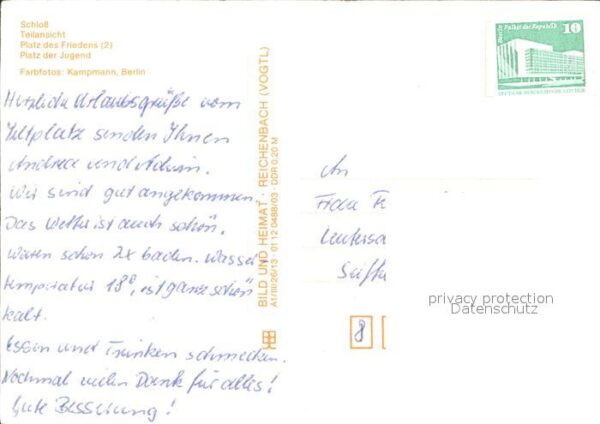 Schloß
Teilansicht
Platz des Friedens (2)
Platz der Jugend
Farbfotos: Kampmann, Berlin
Herzliche Urlaubsgrüße vom
Zeltplatz senden Ihnen
Andrea und
Wir sind gut angekommen.
Das Wetter ist auch schön.
Waren schon 2x baden. Wasser
temperatur 18°, ist ganz schön
kalt.
Essen und Trinken schmecken.
Nochmal vielen Dank für alles!
Gute Besserung!
BILD UND HEIMAT · REICHENBACH (VOGTL)
A1/III/26/13 · 01 12 0488/03 · DDR 0,20 M
Berlin, Palast der Republik
10
DEUTSCHE DEMOKRATISCHE REPUBLIK
An
Frau
8
privacy protection
Datenschutz